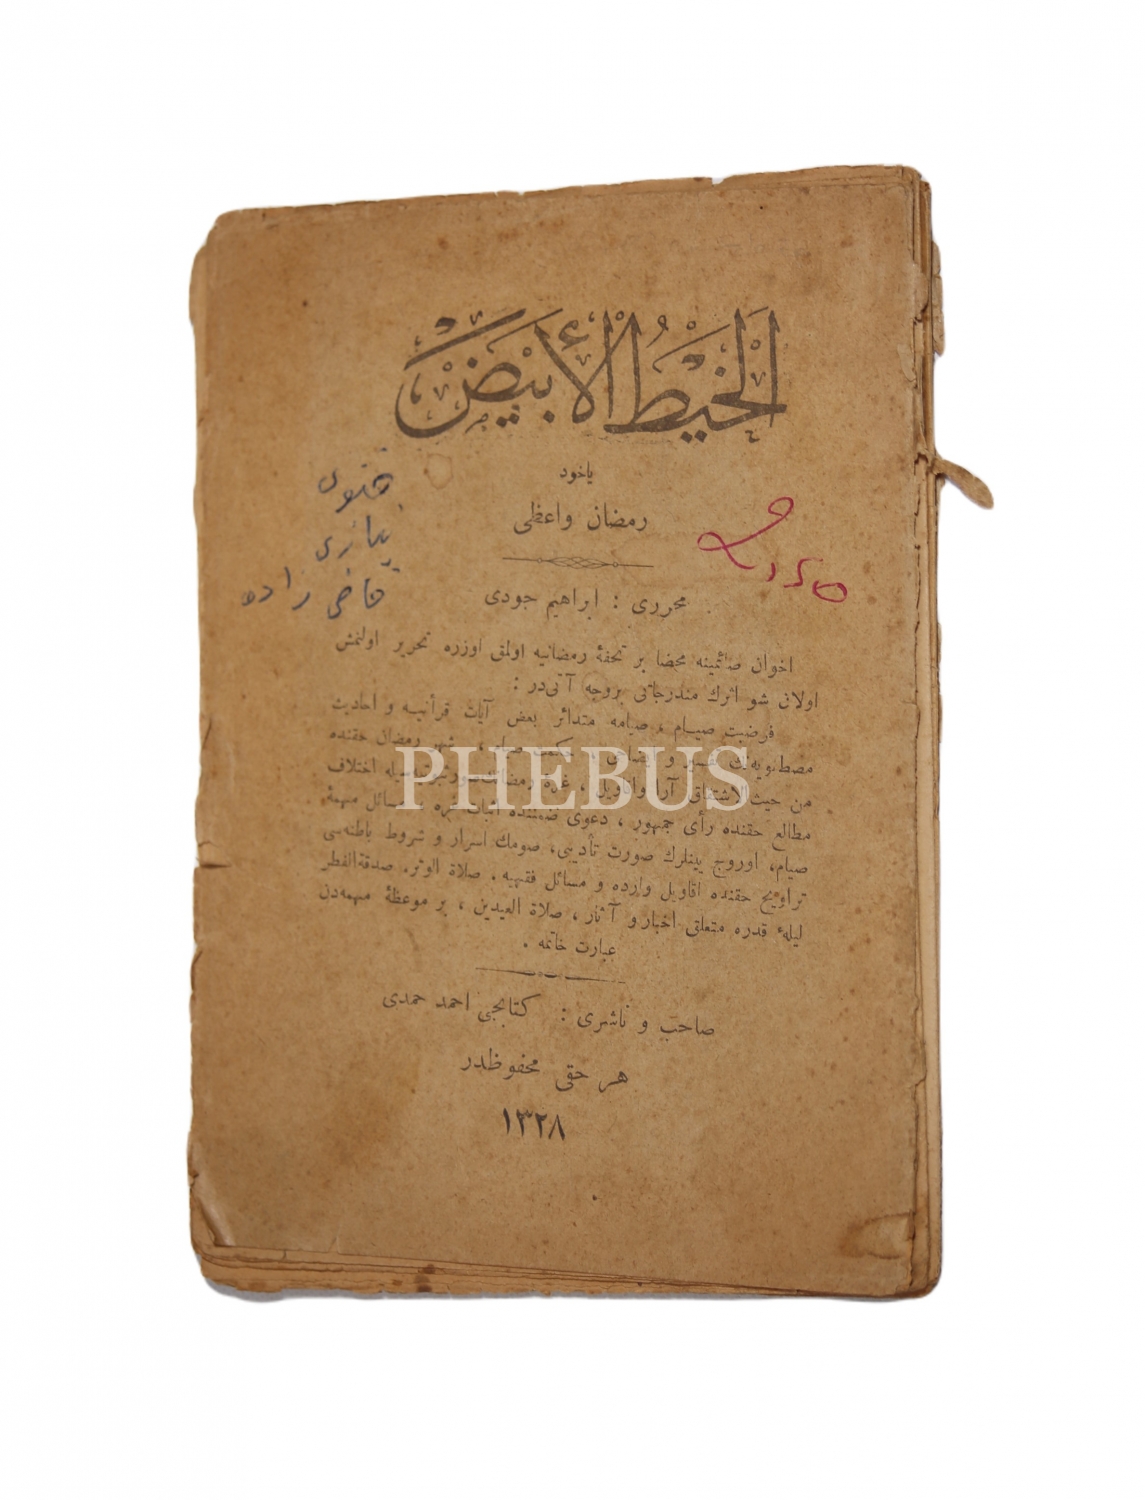 الخَيْطُ الأَبْيَضُ
ياخود
رمضان واعظى
محررى : ابراهيم جودى
اخوان صائمينه محضا بر تحفهٔ رمضانيه اولمق اوزره تحرير اولنمش
اولان شو اثرك مندرجاتى بروجه آتى در :
فرضيت صيام ، صيامه متدائر بعض آيات قرآنيه و احاديث
مصطفويه‌نك و ايضاحى ، حكمت ، شهر رمضان حقنده
من حيث الاشتقاق آرا واقاويل ، غرهٔ اختلاف
مطالع حقنده رأى جمهور ، دعوى ضمننده اثبات غره ، مسائل مهمهٔ
صيام، اوروج يينلرك صورت تأديبى، صومك اسرار و شروط باطنه‌سى
تراويح حقنده اقاويل وارده و مسائل فقهيه ، صلاة الوتر، صدقة الفطر
ليلهٔ قدره متعلق اخبار و آثار ، صلاة العيدين ، بر موعظهٔ مهمه‌دن
عبارت خاتمه .
صاحب و ناشرى : كتابجى احمد حمدى
هر حقى محفوظدر
١٣٢٨
نيازى
قاضى زاده
PHEBUS